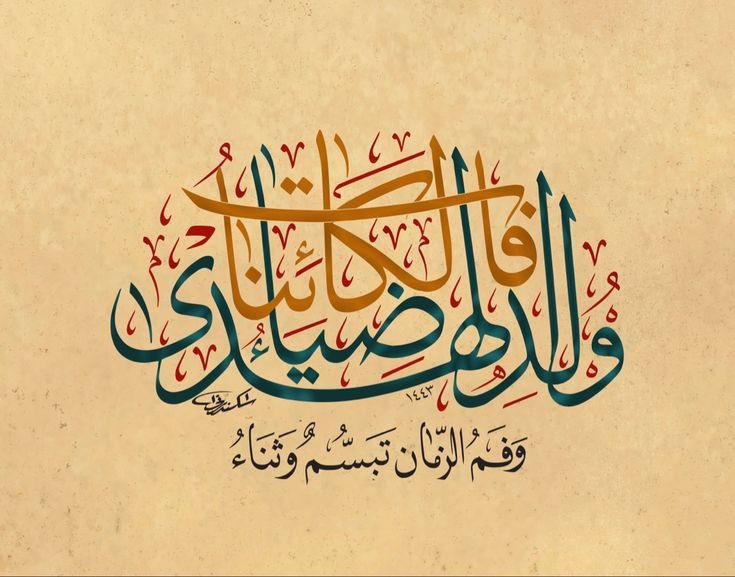 وُلِدَ الهُدى فَالكائِناتُ ضِياءُ
١٤٤٣
وَفَمُ الزَّمانِ تَبَسُّمٌ وَثَنَاءُ